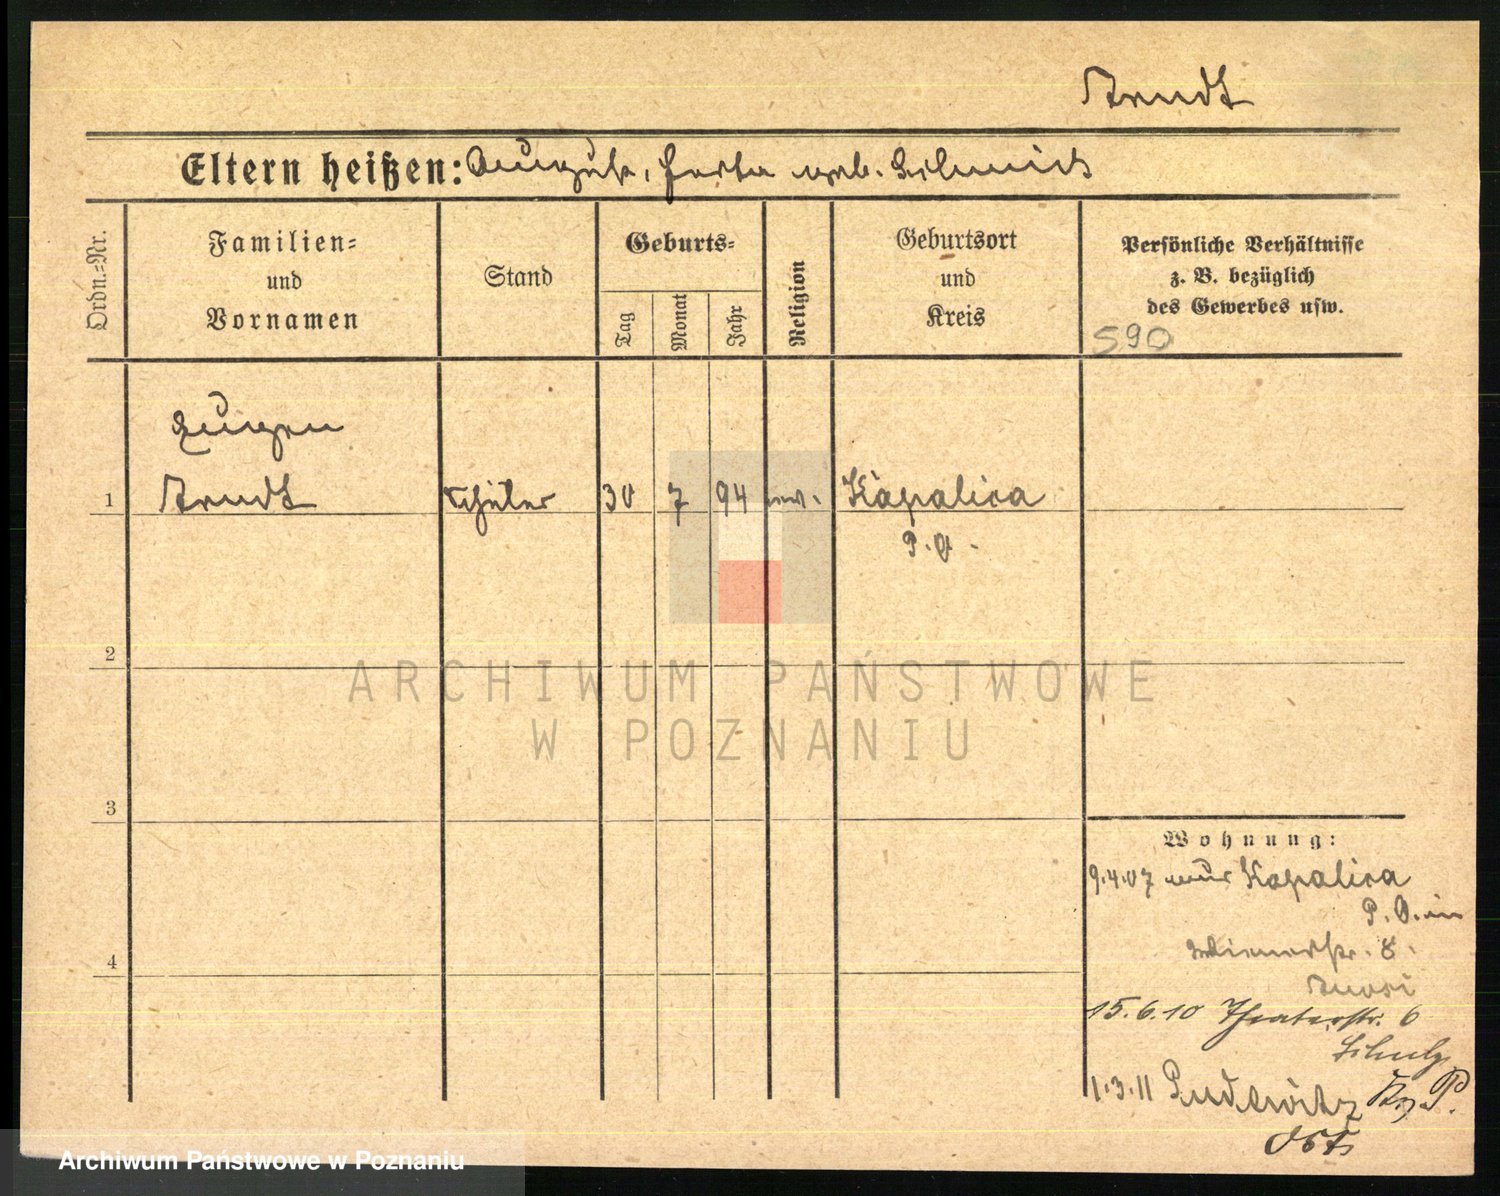 Arndt
Eltern heißen: August, Herta geb. Schmidt
Ordn.=Nr.
Familien=
und
Vornamen
Stand
Geburts=
Tag
Monat
Jahr
Religion
Geburtsort
und
Kreis
Persönliche Verhältnisse
z. B. bezüglich
des Gewerbes usw.
590
Eugen
1 Arndt Schüler 30 7 94 ev. Kapalica
P. O.
2
3
4
Wohnung:
9.4.07 aus Kapalica
P. O. in
Wienerstr. 8.
15.6.10 Theaterstr. 6
Schulz
1.3.11 Pudewitz Kr. P.
Ost
ARCHIWUM PAŃSTWOWE
W POZNANIU
Archiwum Państwowe w Poznaniu